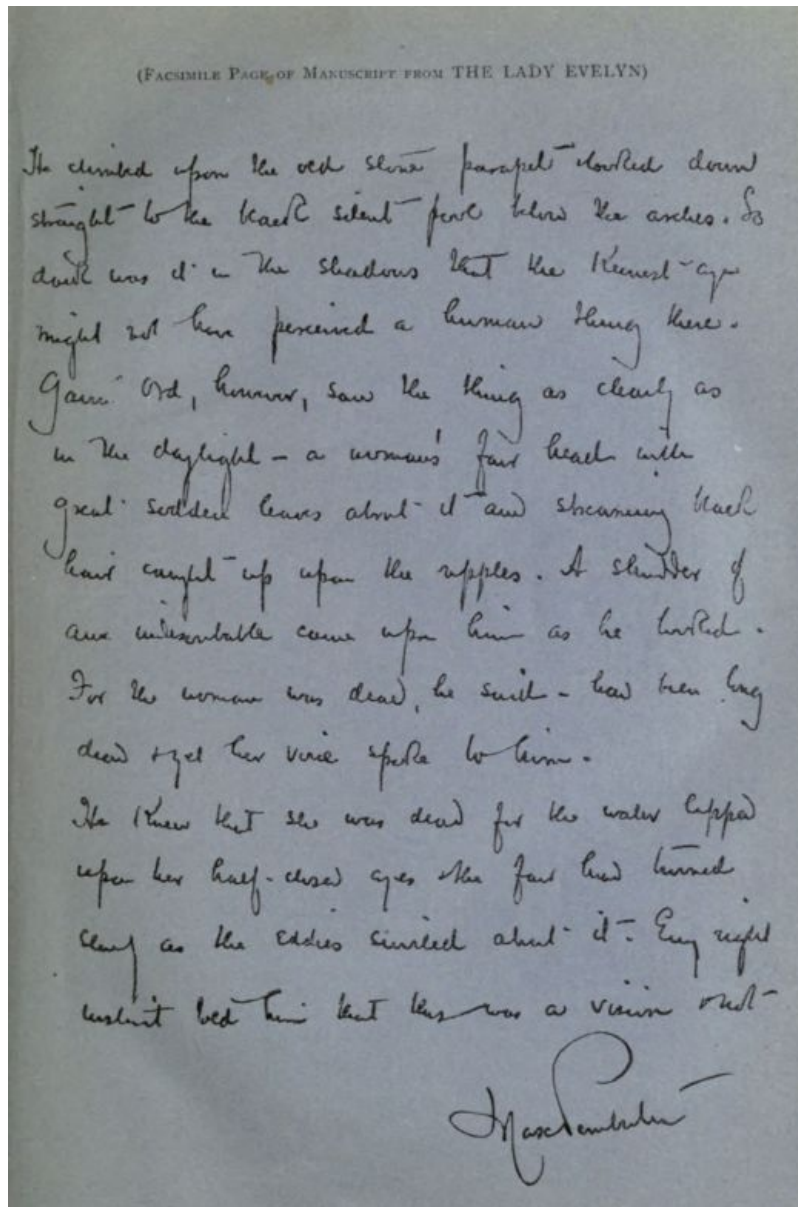 (FACSIMILE PAGE OF MANUSCRIPT FROM THE LADY EVELYN)
He climbed upon the old stone parapet & looked down
straight to the black silent pool below the arches. So
dark was it in the shadows that the keenest eyes
might not have perceived a human thing there.
Gavin Ord, however, saw the thing as clearly as
in the daylight - a woman's fair head with
great sodden leaves about it and streaming black
hair caught up upon the ripples. A shudder of
awe indescribable came upon him as he looked.
For the woman was dead, he said - had been long
dead & yet her voice spoke to him.
He knew that she was dead for the water lapped
upon her half-closed eyes & the fair head turned
slowly as the eddies swirled about it. Every right
instinct told him that this was a vision & not
Max Pemberton